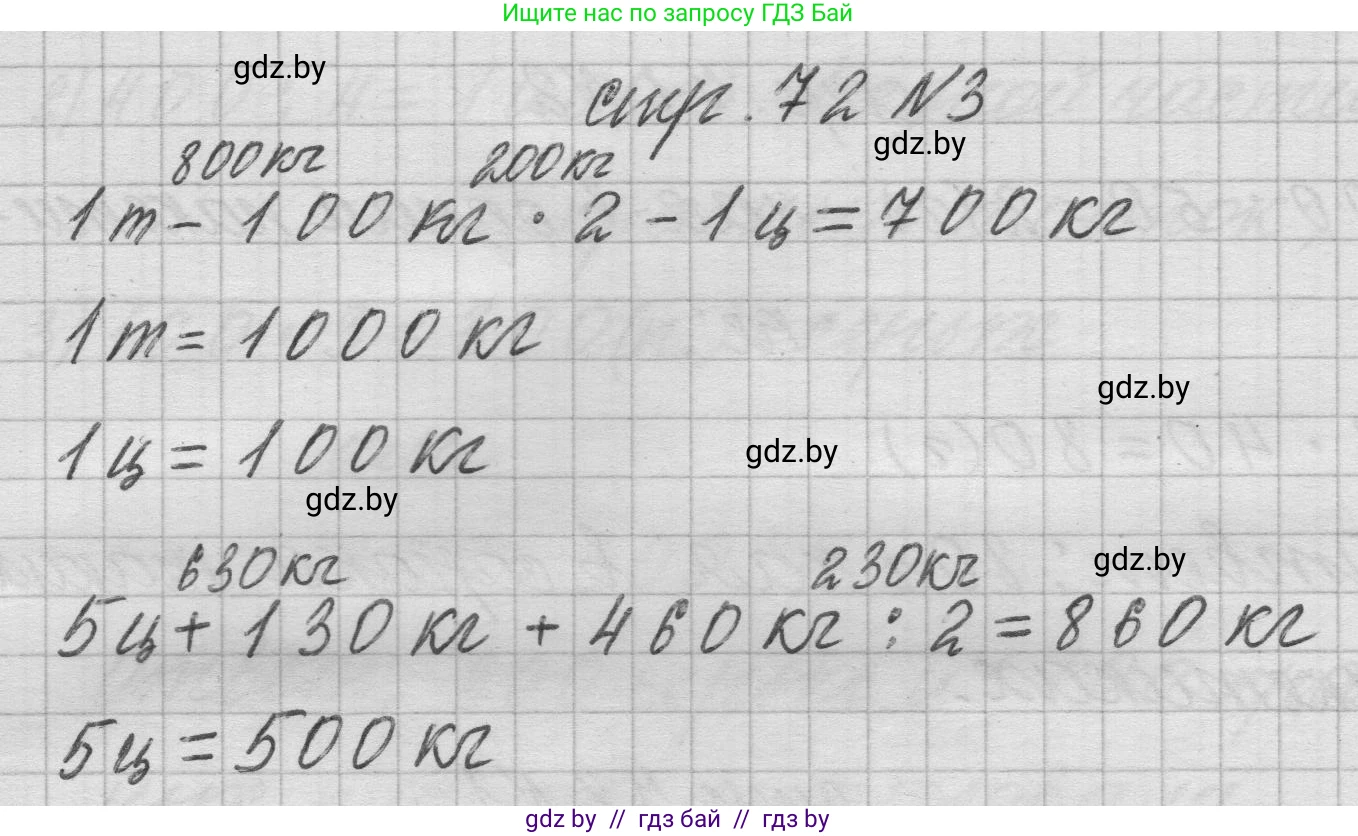 Ищите нас по запросу ГДЗ Бай
gdz.by
стр. 72 N3
gdz.by
800кг 200кг
1т - 100 кг · 2 - 1ц = 700 кг
1т = 1000 кг
gdz.by
1ц = 100 кг
gdz.by
gdz.by
630кг 230кг
gdz.by
5ц + 130 кг + 460 кг : 2 = 860 кг
5ц = 500 кг
gdz by // гдз бай // гдз by